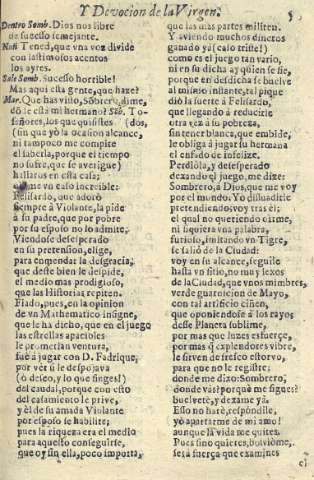 Y Devocion de la Virgen. 5
Dentro Somb. Dios nos libre
de sucesso semejante.
Nuñ Tened, que vna voz divide
con lastimosos acentos
los ayres.
Sale Somb. Sucesso horrible!
Mas aqui esta gente, que haze?
Mar. Que has visto, Sõbrero, dime,
dõ le está mi hermano? Sõb. To-
señores, los que quisistes (dos,
(sin que yo la ocasion alcance,
ni tampoco me compite
el saberla, porque el tiempo
no sufre, que se averigue)
hallaros en esta casa;
vn caso increible:
Felisardo, que adorò
siempre à Violante, la pide
à su padre, que por pobre
por su esposo no lo admite.
Viendose desesperado
en su pretension, elige,
para enmendar la desgracia,
que deste bien le despide,
el medio mas prodigioso,
que las Historias repiten.
Fiado, pues, en la opinion
de vn Mathematico insigne,
que le ha dicho, que en el juego
las estrellas apacibles
le prometian ventura,
fue à jugar con D. Fadrique,
por vèr si le despojava
(ò deseo, y lo que finges!)
del caudal, porque con esto
del casamiento le prive,
y èl de su amada Violante
por esposo se habilite;
pues la riqueza era el medio
para aquesto conseguirse,
que oy sin ella, poco importa,
que las mas partes militen.
Y aviendo muchos dineros
ganado ya (caso triste!)
como es el juego tan vario,
ni en su dicha ay quien se fie,
porque en desdicha se buelve
al mismo instante, tal pique
diò la suerte à Felisardo,
que llegando à reducirle
otra vez à su pobreza,
sin tener blanca, que embide,
le obliga à jugar su hermana
el enfado de infelize.
Perdiòla, y desesperado
dexando el juego, me dize:
Sombrero, à Dios, que me voy
por el mundo. Yo disuadirle
pretendiendo, voy tras èl;
el qual no queriendo oirme,
ni siquiera vna palabra,
furioso, imitando vn Tigre,
se saliò de la Ciudad:
voy en su alcance, seguile
hasta vn sitio, no muy lexos
de la Ciudad, que vnos mimbres,
verde guarnicion de Mayo,
con tal artificio ciñen,
que oponiendose à los rayos
desse Planeta sublime,
por mas que luzes esfuerce,
por mas q̃ explendores vibre,
le sirven de fresco estorvo,
para que no le registre;
donde me dixo: Sombrero,
donde vàs? porquè me sigues?
buelvete, y dexame yà.
Esso no harè, respondile,
yo apartarme de mi amo!
aunque la vida me quites.
Pues sino quieres, bolviòme,
serà fuerça que examines
el